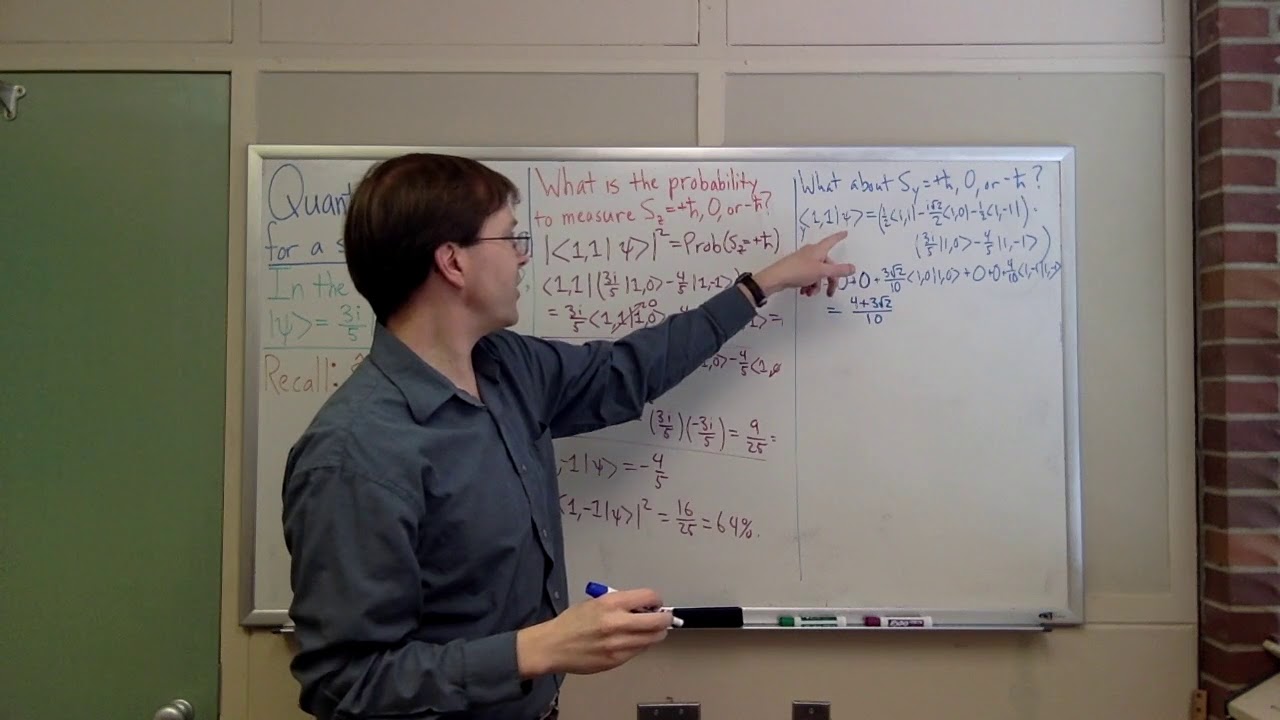 Quant
for a s
In the
|ψ> = 3i/5 |
Recall:
What is the probability
to measure S_z = +ħ, 0, or -ħ?
|<1,1|ψ>|² = Prob(S_z = +ħ)
<1,1|(3i/5 |1,0> - 4/5 |1,-1>)
= 3i/5 <1,1|1,0>
|1,0> - 4/5 <1,0
(3i/5)(-3i/5) = 9/25 =
,-1|ψ> = -4/5
<1,-1|ψ>|² = 16/25 = 64%.
What about S_y = +ħ, 0, or -ħ?
y<1,1|ψ> = (1/2 <1,1| - i√2/2 <1,0| - 1/2 <1,-1|) ·
(3i/5 |1,0> - 4/5 |1,-1>)
0 + 0 + 3√2/10 <1,0|1,0> + 0 + 0 + 4/10 <1,-1|1,-1>
= 4+3√2/10